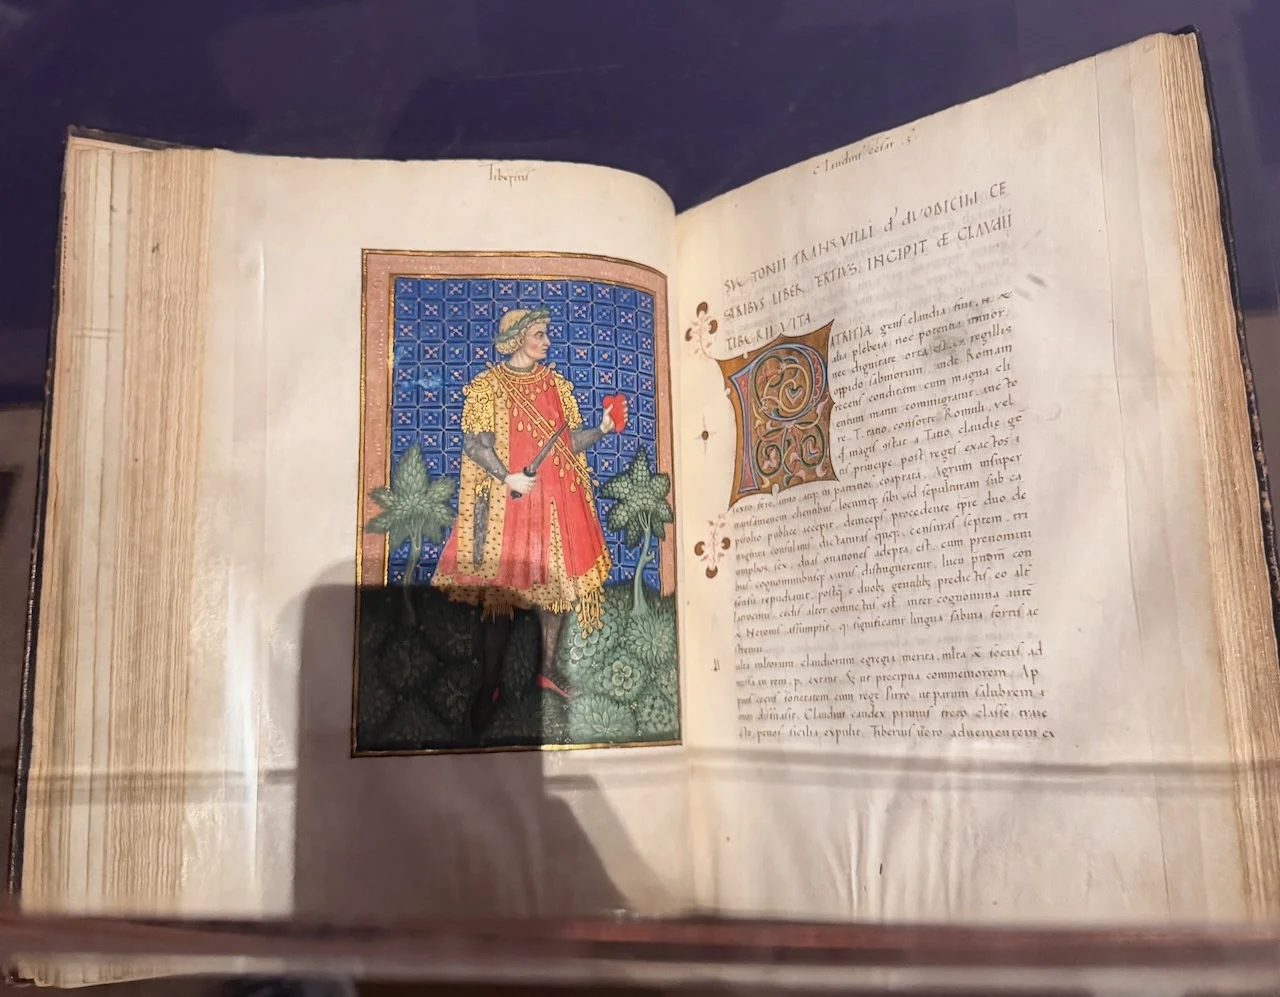 Tiberius
Claudius cesar 3
SVETONII TRANQVILLI d' dVODICIM CE
SARIBVS LIBER TERTIVS: INCIPIT DE CLAVdII
TIBERII VITA
PATRITIA gens claudia fuit, n &
alia plebeia nec potentia minor.
nec dignitate orta est ex regillis
oppido sabinorum. inde Romam
recens conditam cum magna cli
entum manu commigrauit. aucto
re .T. tatio. consorte Romuli, vel
magis a Tatio claudie ge
tis principe post reges exactos
sexto fere anno atq in patritios cooptata. Agrum insuper
clientibus locumq sibi ad sepulturam sub ca
pitolio publice accepit. deinceps procedente tpre duo de
triginta consulatus. dictaturas quinq. censuras septem. tri
umphos sex, duas ouationes adepta est. cum prenomini
bus cognominibusq uarijs distingueretur. lucii con
sensu repudiauit. postq e eo alt'
latrocinij. cedis alter conuictus est. inter cognomina aute
& Neronis assumpsit. q significatur lingua sabina fortis ac
strenuus.
multorum claudiorum egregia merita. mlta & secus ad
missa in rem .p. extant. ut precipua commemorem. Ap
pius cecus societatem cum rege Pirro ut parum salubrem
dissuasit. Claudius caudex primus freto classe traie
cto. penos sicilia expulit. Tiberius uero aduenientem ex